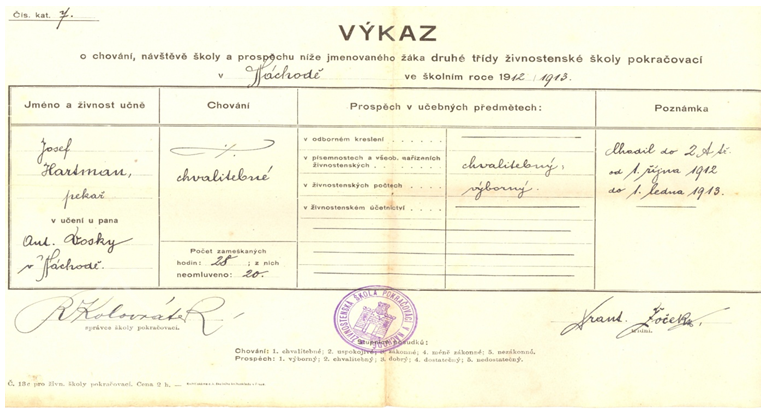 Čís. kat. 7.
VÝKAZ
o chování, návštěvě školy a prospěchu níže jmenovaného žáka druhé třídy živnostenské školy pokračovací
v Náchodě ve školním roce 1912/1913.
Jméno a živnost učně
Chování
Prospěch v učebných předmětech:
Poznámka
Josef
Hartman,
pekař
v učení u pana
Ant.
v Náchodě.
chvalitebné
Počet zameškaných
hodin: 28 ; z nich
neomluveno: 20.
v odborném kreslení
v písemnostech a všeob. nařízeních
živnostenských
chvalitebný,
v živnostenských počtech
výborný.
v živnostenském účetnictví
Chodil do 2 A tř.
od 1. října 1912
do 1. ledna 1913.
správce školy pokračovací.
ŽIVNOSTENSKÁ ŠKOLA POKRAČOVACÍ
Frant.
třídní.
Stupnice posudků:
Chování: 1. chvalitebné; 2. uspokojivé; 3. zákonné; 4. méně zákonné; 5. nezákonné.
Prospěch: 1. výborný; 2. chvalitebný; 3. dobrý; 4. dostatečný; 5. nedostatečný.
Č. 13c pro živn. školy pokračovací. Cena 2 h. —